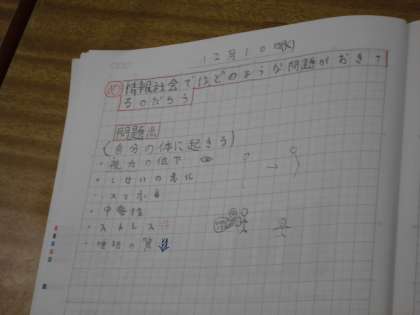 12月10日(火)
め 情報社会ではどのような問題がおき
るのだろう
問題点
(自分の体に起きる)
・視力の低下
・しせいの悪化
・スマホ首
・中毒性
・ストレス
・睡眠の質